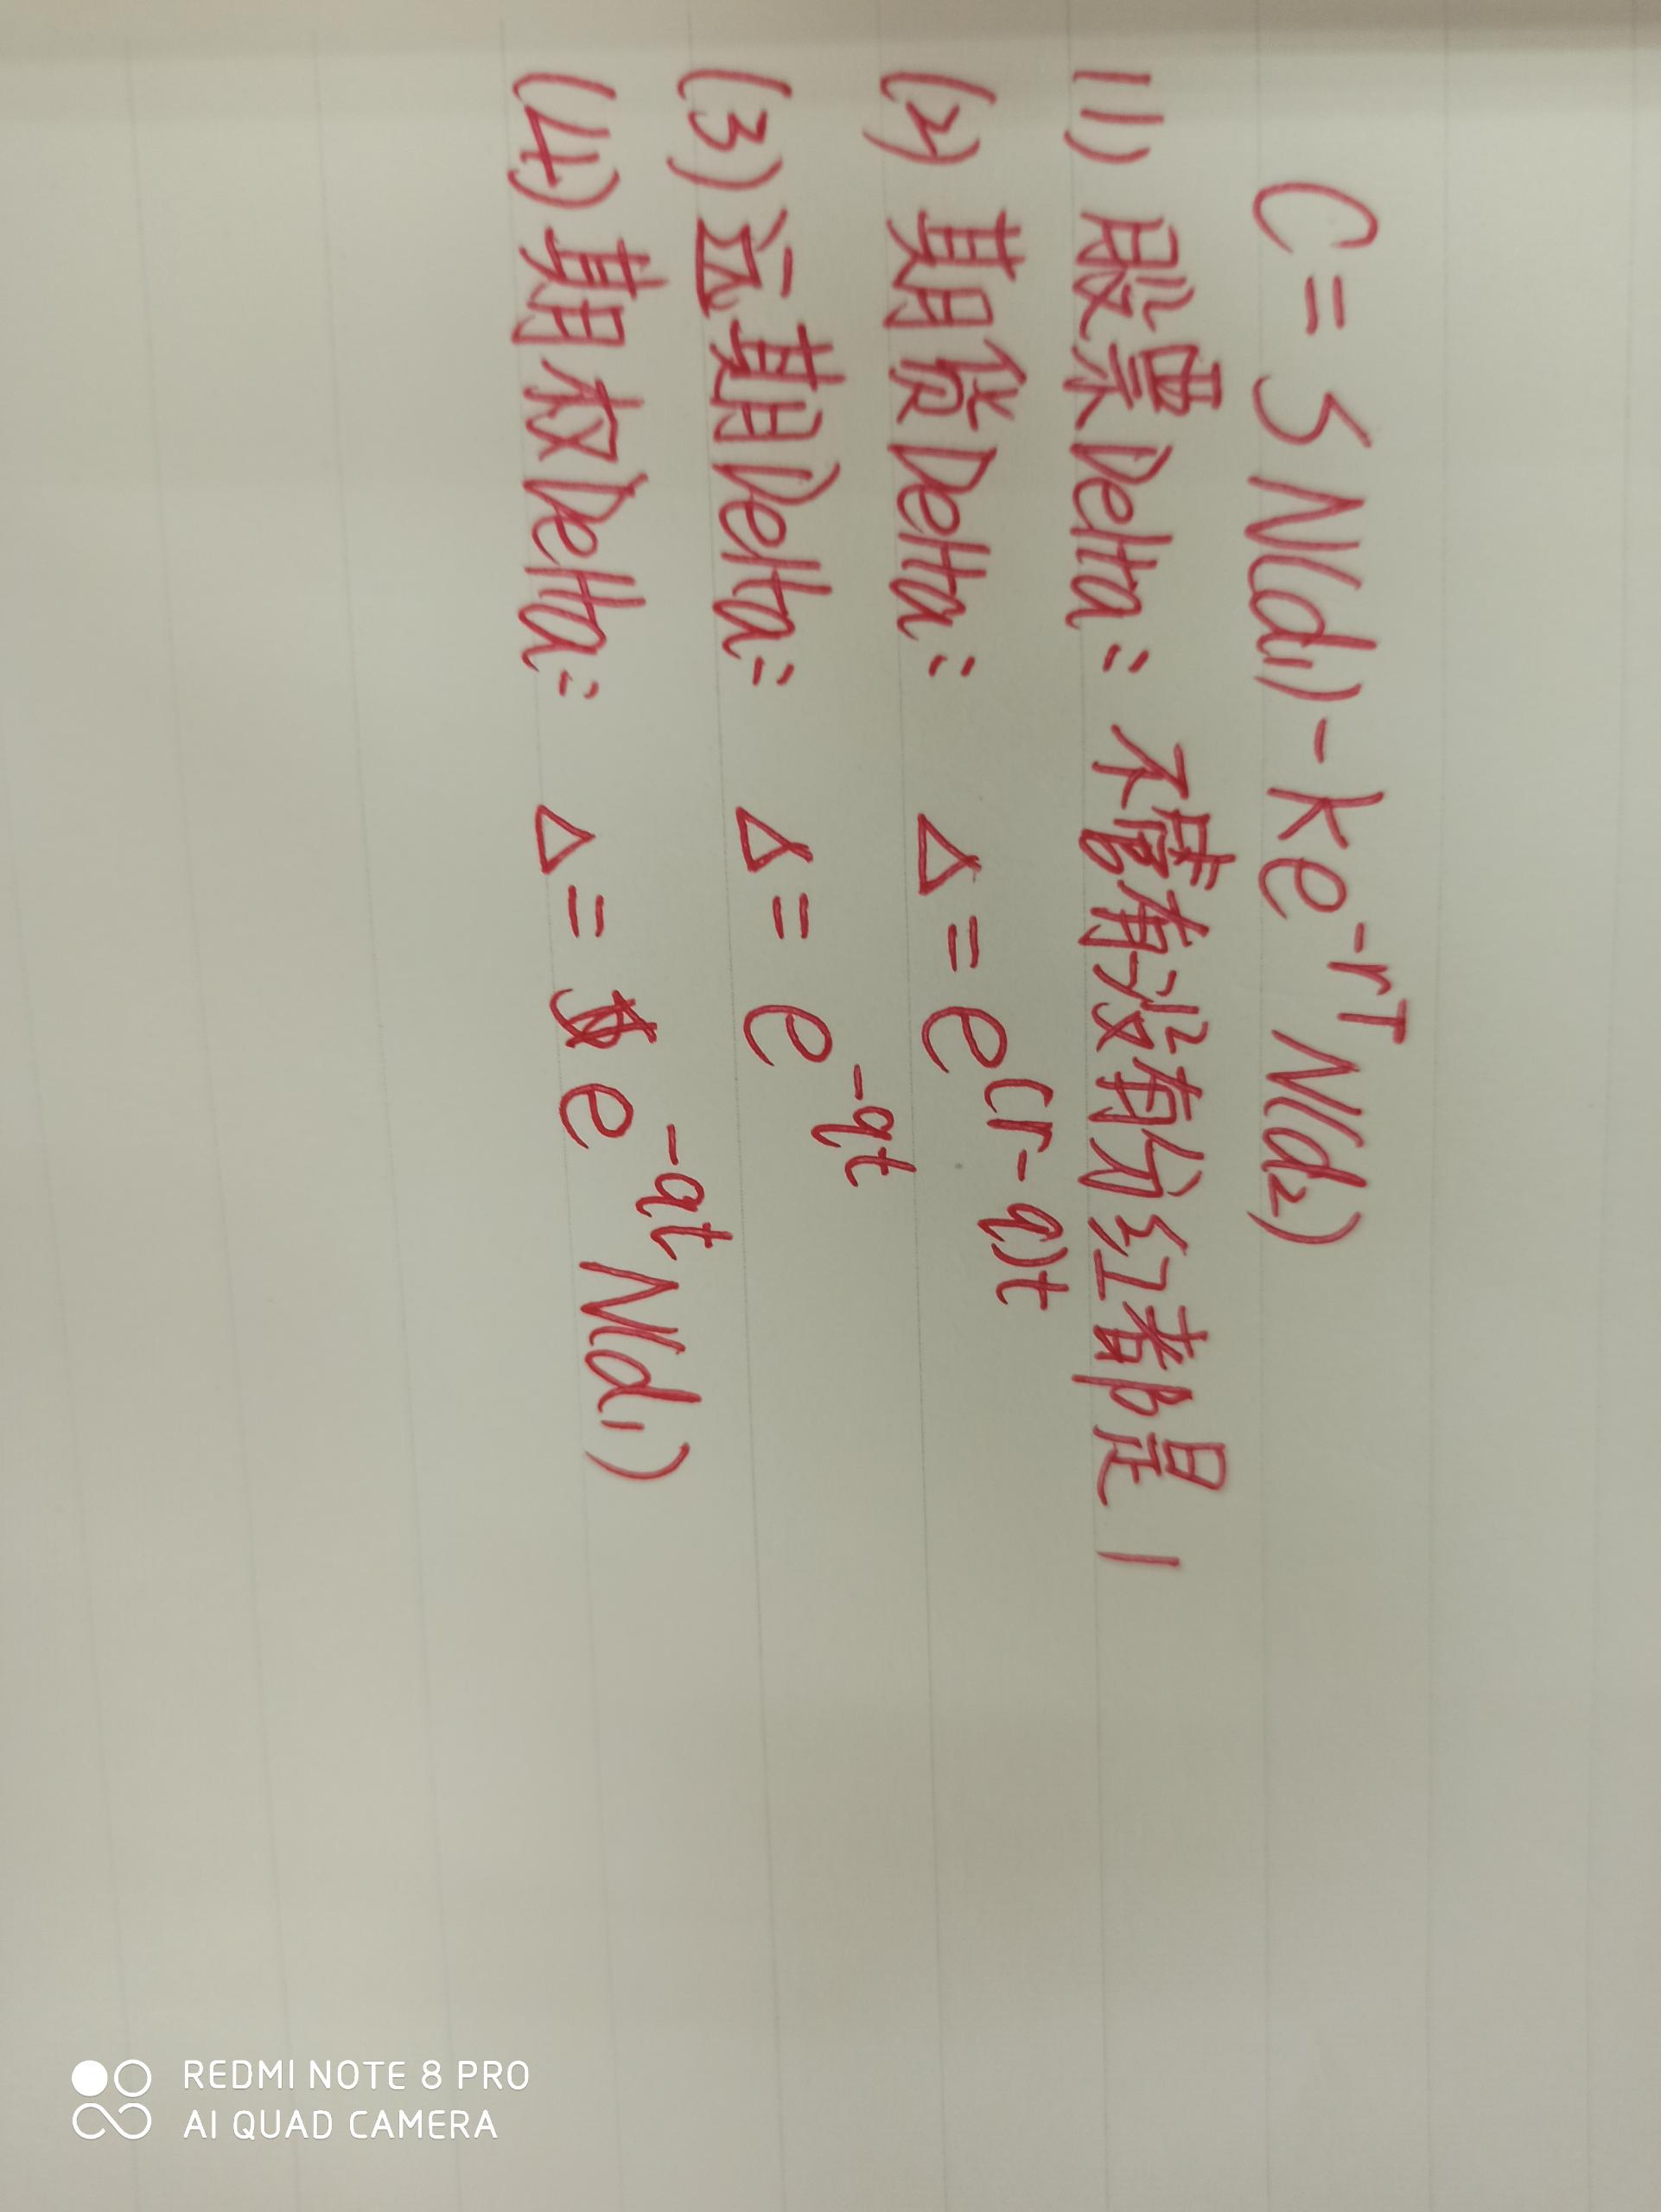 C = SN(d₁) - Ke^{-rT} N(d₂)
(1) 股票Delta: 不管有没有分红都是1
(2) 期货Delta: Δ = e^{(r-q)t}
(3) 远期Delta: Δ = e^{-qt}
(4) 期权Delta: Δ = e^{-qt} N(d₁)
REDMI NOTE 8 PRO
AI QUAD CAMERA